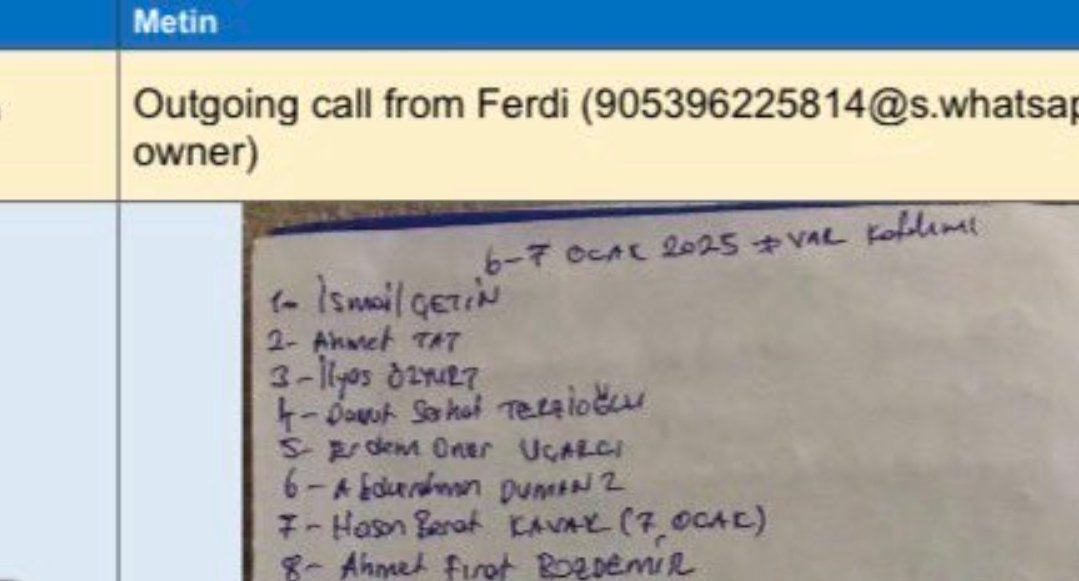 Metin
Outgoing call from Ferdi (905396225814@s.whatsap
owner)
6-7 OCAK 2025 VAR
1- İsmail ÇETİN
2- Ahmet TAT
3- İlyas ÖZYURT
4- Davut Serhat TERZİOĞLU
5- Erdem Öner UÇARCI
6- Abdurrahman DUMAN 2
7- Hasan Berat KAVAK (7 OCAK)
8- Ahmet Fırat BOZDEMİR